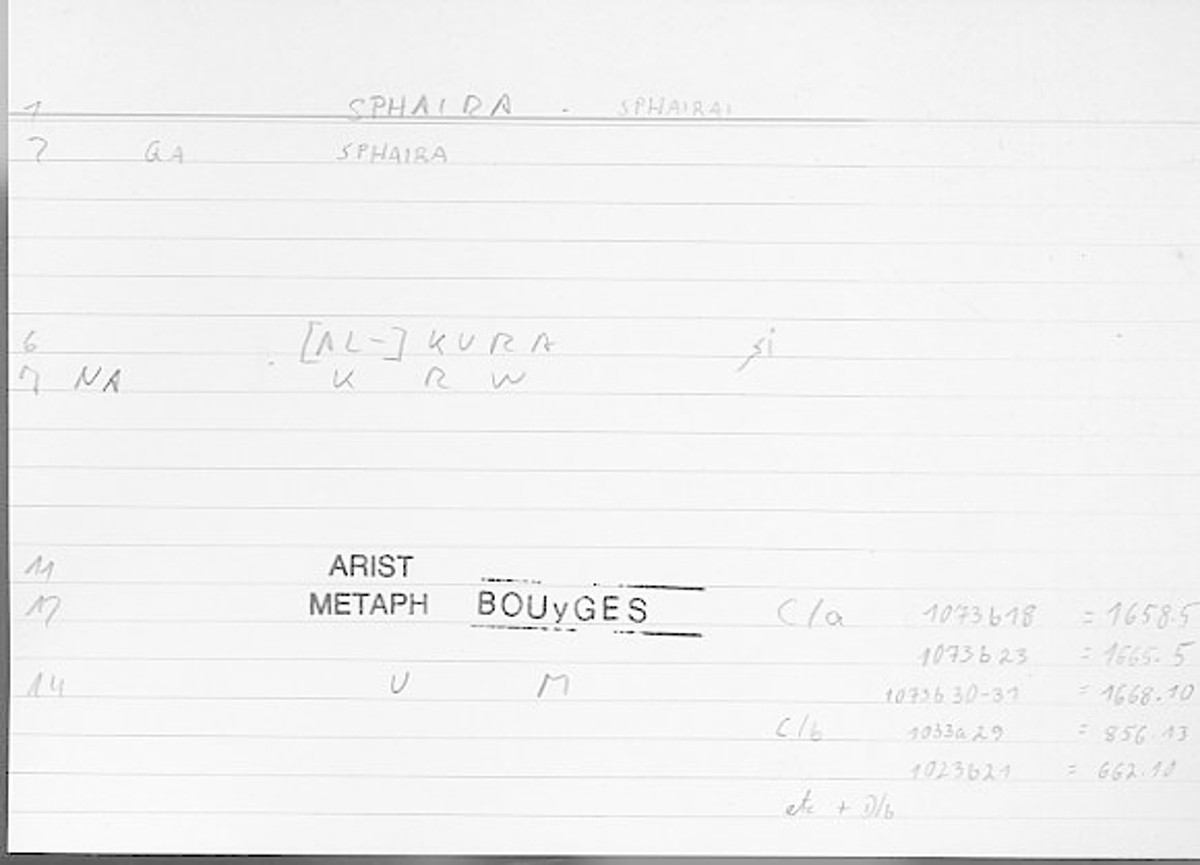 1 SPHAIRA - SPHAIRAI
2 GA SPHAIRA
6 [AL-] KURA şi
7 NA K R W
11 ARIST
12 METAPH BOUyGES C/a 1073b18 = 1658.5
1073b23 = 1665.5
14 U M 1073b30-31 = 1668.10
C/b 1033a29 = 856.13
1023b21 = 662.10
etc + D/b